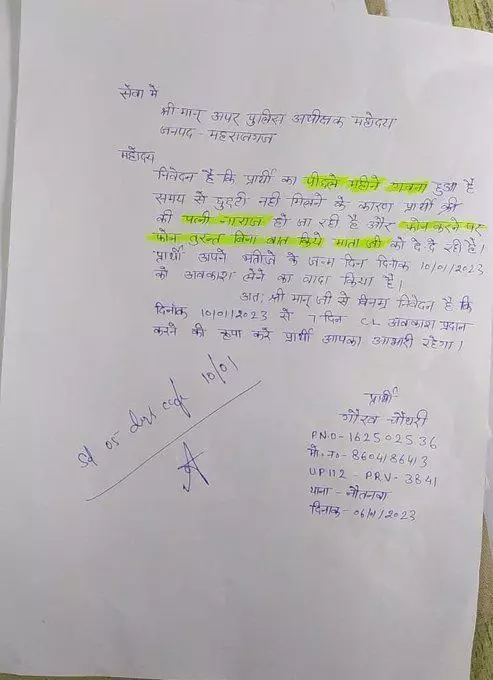 सेवा मे
श्री मान् अपर पुलिस अधीक्षक महोदय
जनपद - महराजगंज
महोदय
निवेदन है कि प्रार्थी का पीछले महीने गवना हुआ है
समय से छुट्टी नही मिलने के कारण प्रार्थी की
की पत्नी नाराज हो जा रही है और फोन करने पर
फोन तुरन्त बिना बात किये माता जी को दे दे रही है।
प्रार्थी अपने भतीजे के जन्म दिन दिनांक 10/01/2023
को अवकाश लेने का वादा किया है।
अतः श्री मान् जी से विनम्र निवेदन है कि
दिनांक 10/01/2023 से 7 दिन CL अवकाश प्रदान
करने की कृपा करे प्रार्थी आपका आभारी रहेगा।
प्रार्थी
गौरव चौधरी
PNO - 162502536
मो. न० - 8604186413
UP112 - PRV - 3841
थाना - नौतनवा
दिनांक - 06/01/2023
05 10/01